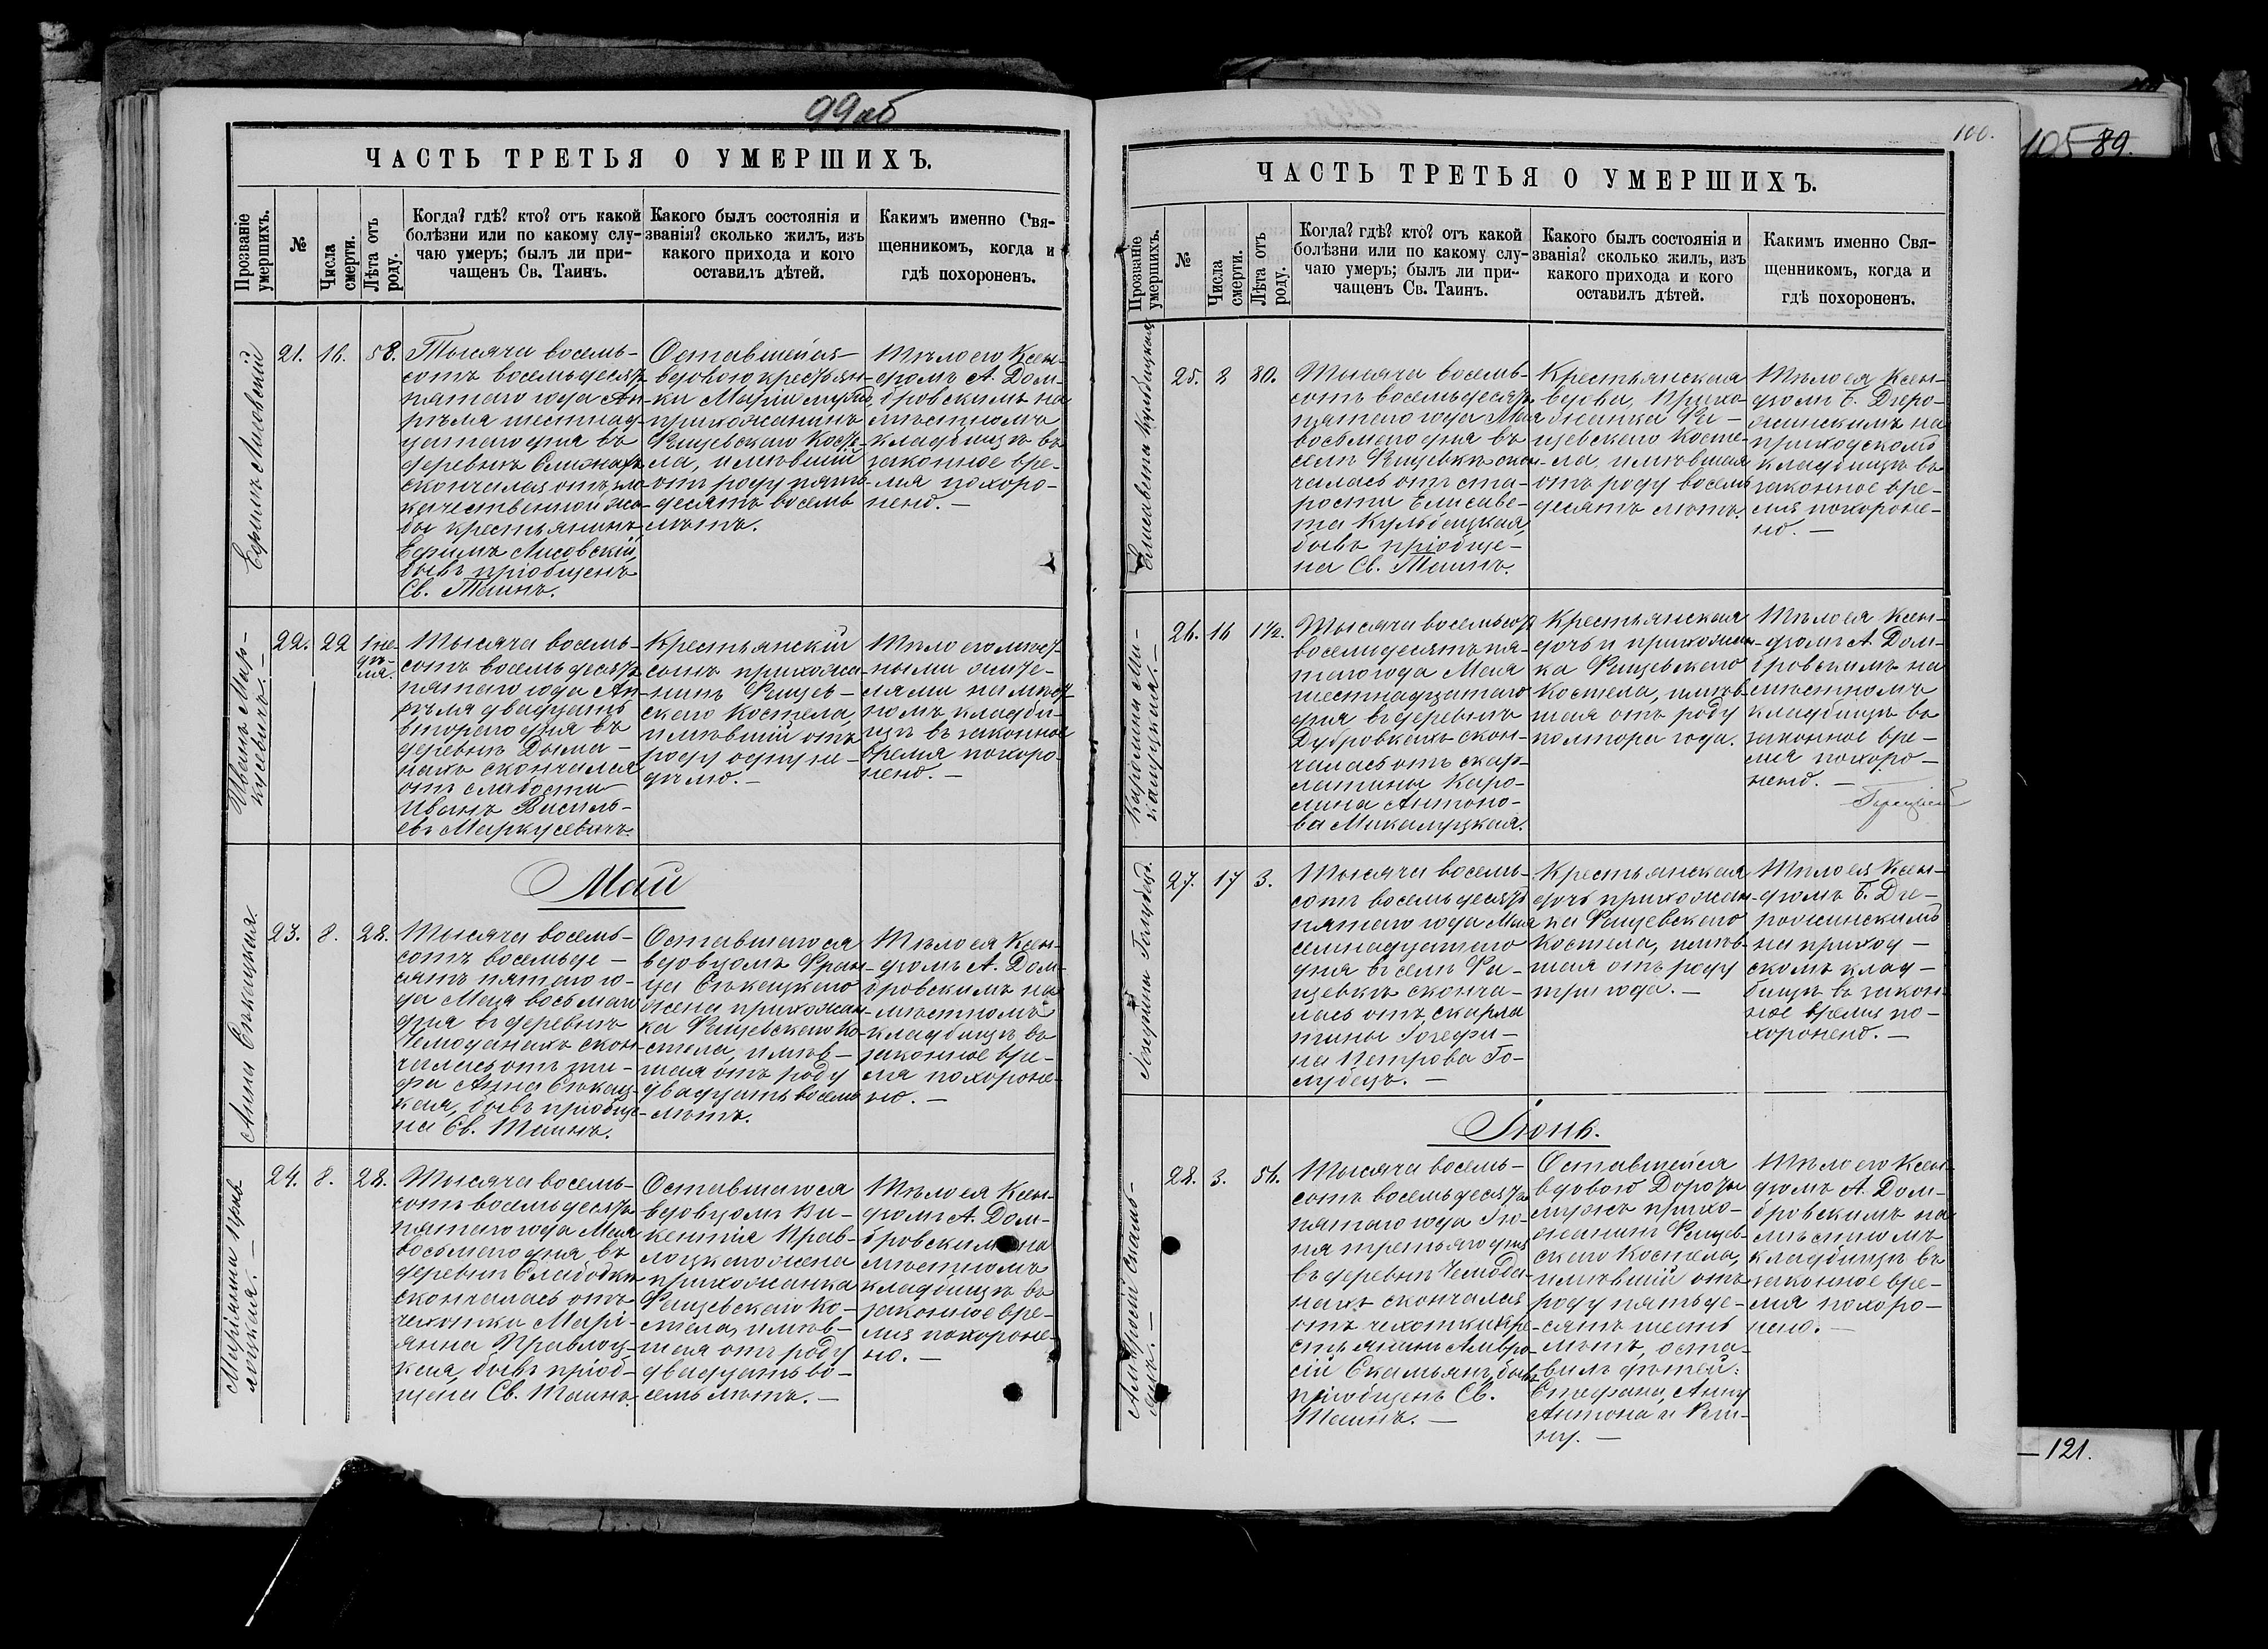 99об
ЧАСТЬ ТРЕТЬЯ О УМЕРШИХЪ.
Прозваніе умершихъ.
№
Числа смерти.
Лѣта отъ роду.
Когда? гдѣ? кто? отъ какой
болѣзни или по какому слу-
чаю умеръ; былъ ли при-
чащенъ Св. Таинъ.
Какого былъ состоянія и
званія? сколько жилъ, изъ
какого прихода и кого
оставилъ дѣтей.
Какимъ именно Свя-
щенникомъ, когда и
гдѣ похороненъ.
Ефимъ Лисовскій
21.
16.
58.
Тысяча восемь-
сотъ восемьдесятъ
пятаго года Ап-
рѣля шестнад-
цатаго дня въ
деревнѣ
скончался отъ зло-
качественной жа-
бы крестьянинъ
Ефимъ Лисовскій,
бывъ пріобщенъ
Св. Таинъ.
Оставшейся
вдовою крестьян-
ки Маріи мужъ,
прихожанинъ
Фащевскаго Косте-
ла, имѣвшій
отъ роду пять-
десятъ восемь
лѣтъ.
Тѣло его Ксен-
дзомъ А. Дом-
бровскимъ на
мѣстномъ
кладбищѣ въ
законное вре-
мя похоро-
нено. —
Иванъ Мар-
кусевичъ. —
22.
22
1 не-
дѣ-
ля.
Тысяча восемь-
сотъ восемьдесятъ
пятаго года Ап-
рѣля двадцать
втораго дня въ
деревнѣ Дыма-
нахъ скончался
отъ слабости
Иванъ Василь-
евъ Маркусевичъ.
Крестьянскій
сынъ прихожа-
нинъ Фащев-
скаго Костела,
имѣвшій отъ
роду одну не-
дѣлю. —
Тѣло его мѣст-
ными жите-
лями на мѣст-
номъ кладби-
щѣ въ законное
время похоро-
нено. —
Май
Анна Сѣкацкая.
23.
8.
28.
Тысяча восемь-
сотъ восемьде-
сятъ пятаго го-
да Мая восьмаго
дня въ деревнѣ
Чемоданахъ скон-
чалась отъ ти-
фа Анна Сѣкац-
кая, бывъ пріобще-
на Св. Таинъ.
Оставшагося
вдовцомъ Фран-
ца Сѣкацкаго
жена прихожан-
ка Фащевскаго Ко-
стела, имѣв-
шая отъ роду
двадцать восемь
лѣтъ.
Тѣло ея Ксен-
дзомъ А. Дом-
бровскимъ на
мѣстномъ
кладбищѣ въ
законное вре-
мя похороне-
но. —
Маріанна Прав-
лоцкая. —
24.
8.
28.
Тысяча восемь-
сотъ восемьдесятъ
пятаго года Мая
восьмаго дня въ
деревнѣ Слабодки
скончалась отъ
чахотки Марі-
анна Правлоц-
кая, бывъ пріоб-
щена Св. Таинъ.
Оставшагося
вдовцомъ Ви-
кентія Прав-
лоцкаго жена
прихожанка
Фащевскаго Ко-
стела, имѣв-
шая отъ роду
двадцать во-
семь лѣтъ. —
Тѣло ея Ксен-
дзомъ А. Дом-
бровскимъ на
мѣстномъ
кладбищѣ въ
законное вре-
мя похороне-
но. —
100.
ЧАСТЬ ТРЕТЬЯ О УМЕРШИХЪ.
Прозваніе умершихъ.
№
Числа смерти.
Лѣта отъ роду.
Когда? гдѣ? кто? отъ какой
болѣзни или по какому слу-
чаю умеръ; былъ ли при-
чащенъ Св. Таинъ.
Какого былъ состоянія и
званія? сколько жилъ, изъ
какого прихода и кого
оставилъ дѣтей.
Какимъ именно Свя-
щенникомъ, когда и
гдѣ похороненъ.
Елисавета Кульбицкая
25.
2
80.
Тысяча восемь-
сотъ восемьдесятъ
пятаго года Мая
восьмаго дня въ
селѣ Фащевкѣ скон-
чалась отъ ста-
рости Елисаве-
та Кульбицкая,
бывъ пріобще-
на Св. Таинъ.
Крестьянская
вдова, прихо-
жанка Фа-
щевскаго Косте-
ла, имѣвшая
отъ роду восемь
десятъ лѣтъ.
Тѣло ея Ксен-
дзомъ Б. Дзеро-
жинскимъ на
приходскомъ
кладбищѣ въ
законное вре-
мя похороне-
но. —
Каролина Ми-
калуцкая. —
26.
16
1½.
Тысяча восемьсотъ
восемьдесятъ пя-
таго года Мая
шестнадцатаго
дня въ деревнѣ
Дубровкахъ скон-
чалась отъ скар-
латины Каро-
лина Антоно-
ва Микалуцкая.
Крестьянская
дочь и прихожан-
ка Фащевскаго
Костела, имѣв-
шая отъ роду
полтора года.
Тѣло ея Ксен-
дзомъ А. Дом-
бровскимъ на
мѣстномъ
кладбищѣ въ
законное вре-
мя похоро-
нено. —
Іозефина Голубецъ.
27.
17
3.
Тысяча восемь-
сотъ восемьдесятъ
пятаго года Мая
семнадцатаго
дня въ селѣ Фа-
щевкѣ сконча-
лась отъ скарла
тины Іозефи-
на Петрова Го-
лубецъ. —
Крестьянская
дочь прихожан-
ка Фащевскаго
Костела, имѣв-
шая отъ роду
три года. —
Тѣло ея Ксен-
дзомъ Б. Дзе-
рожинскимъ
на приход-
скомъ клад-
бищѣ въ закон-
ное время по-
хоронено. —
Іюнь.
Амвросій Скамь-
янъ. —
28.
3.
56.
Тысяча восемь-
сотъ восемьдесятъ
пятаго года Ію-
ня третьяго дня
въ деревнѣ Чемода-
нахъ скончался
отъ чахотки кре-
стьянинъ Амвро-
сій Скамьянъ, бывъ
пріобщенъ Св.
Таинъ. —
Оставшейся
вдовою Дороты
мужъ прихо-
жанинъ Фащев-
скаго Костела,
имѣвшій отъ
роду пятьде-
сятъ шесть
лѣтъ, оста-
вилъ дѣтей:
Стефана, Анну
Антона и
Тѣло его Ксен-
дзомъ А. Дом-
бровскимъ на
мѣстномъ
кладбищѣ въ
законное вре-
мя похоро-
нено. —
105 89.
— 121.